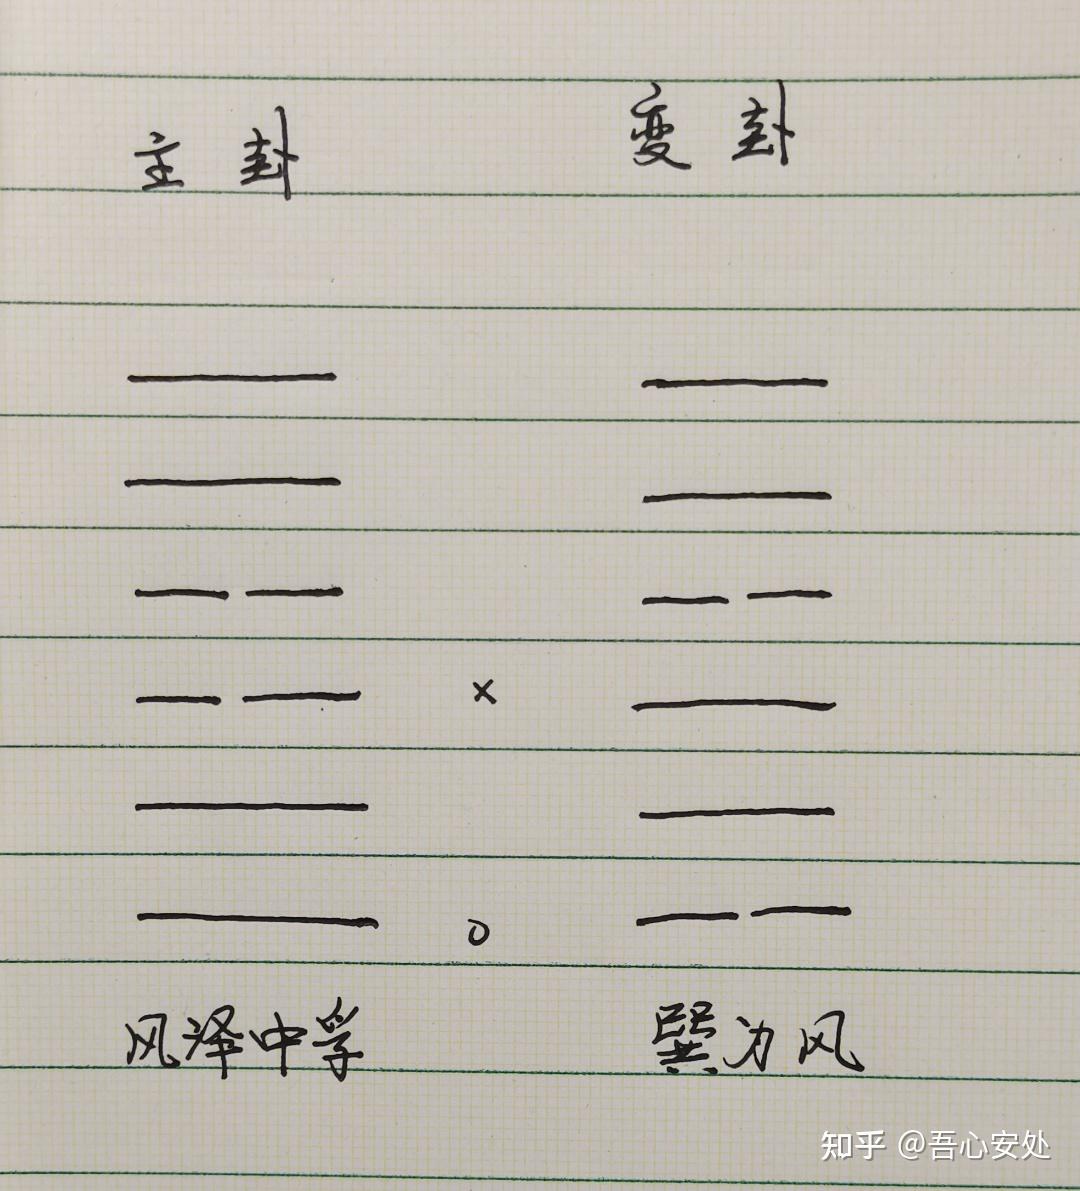 主卦 变卦
×
o
风泽中孚 巽为风
知乎 @吾心安处